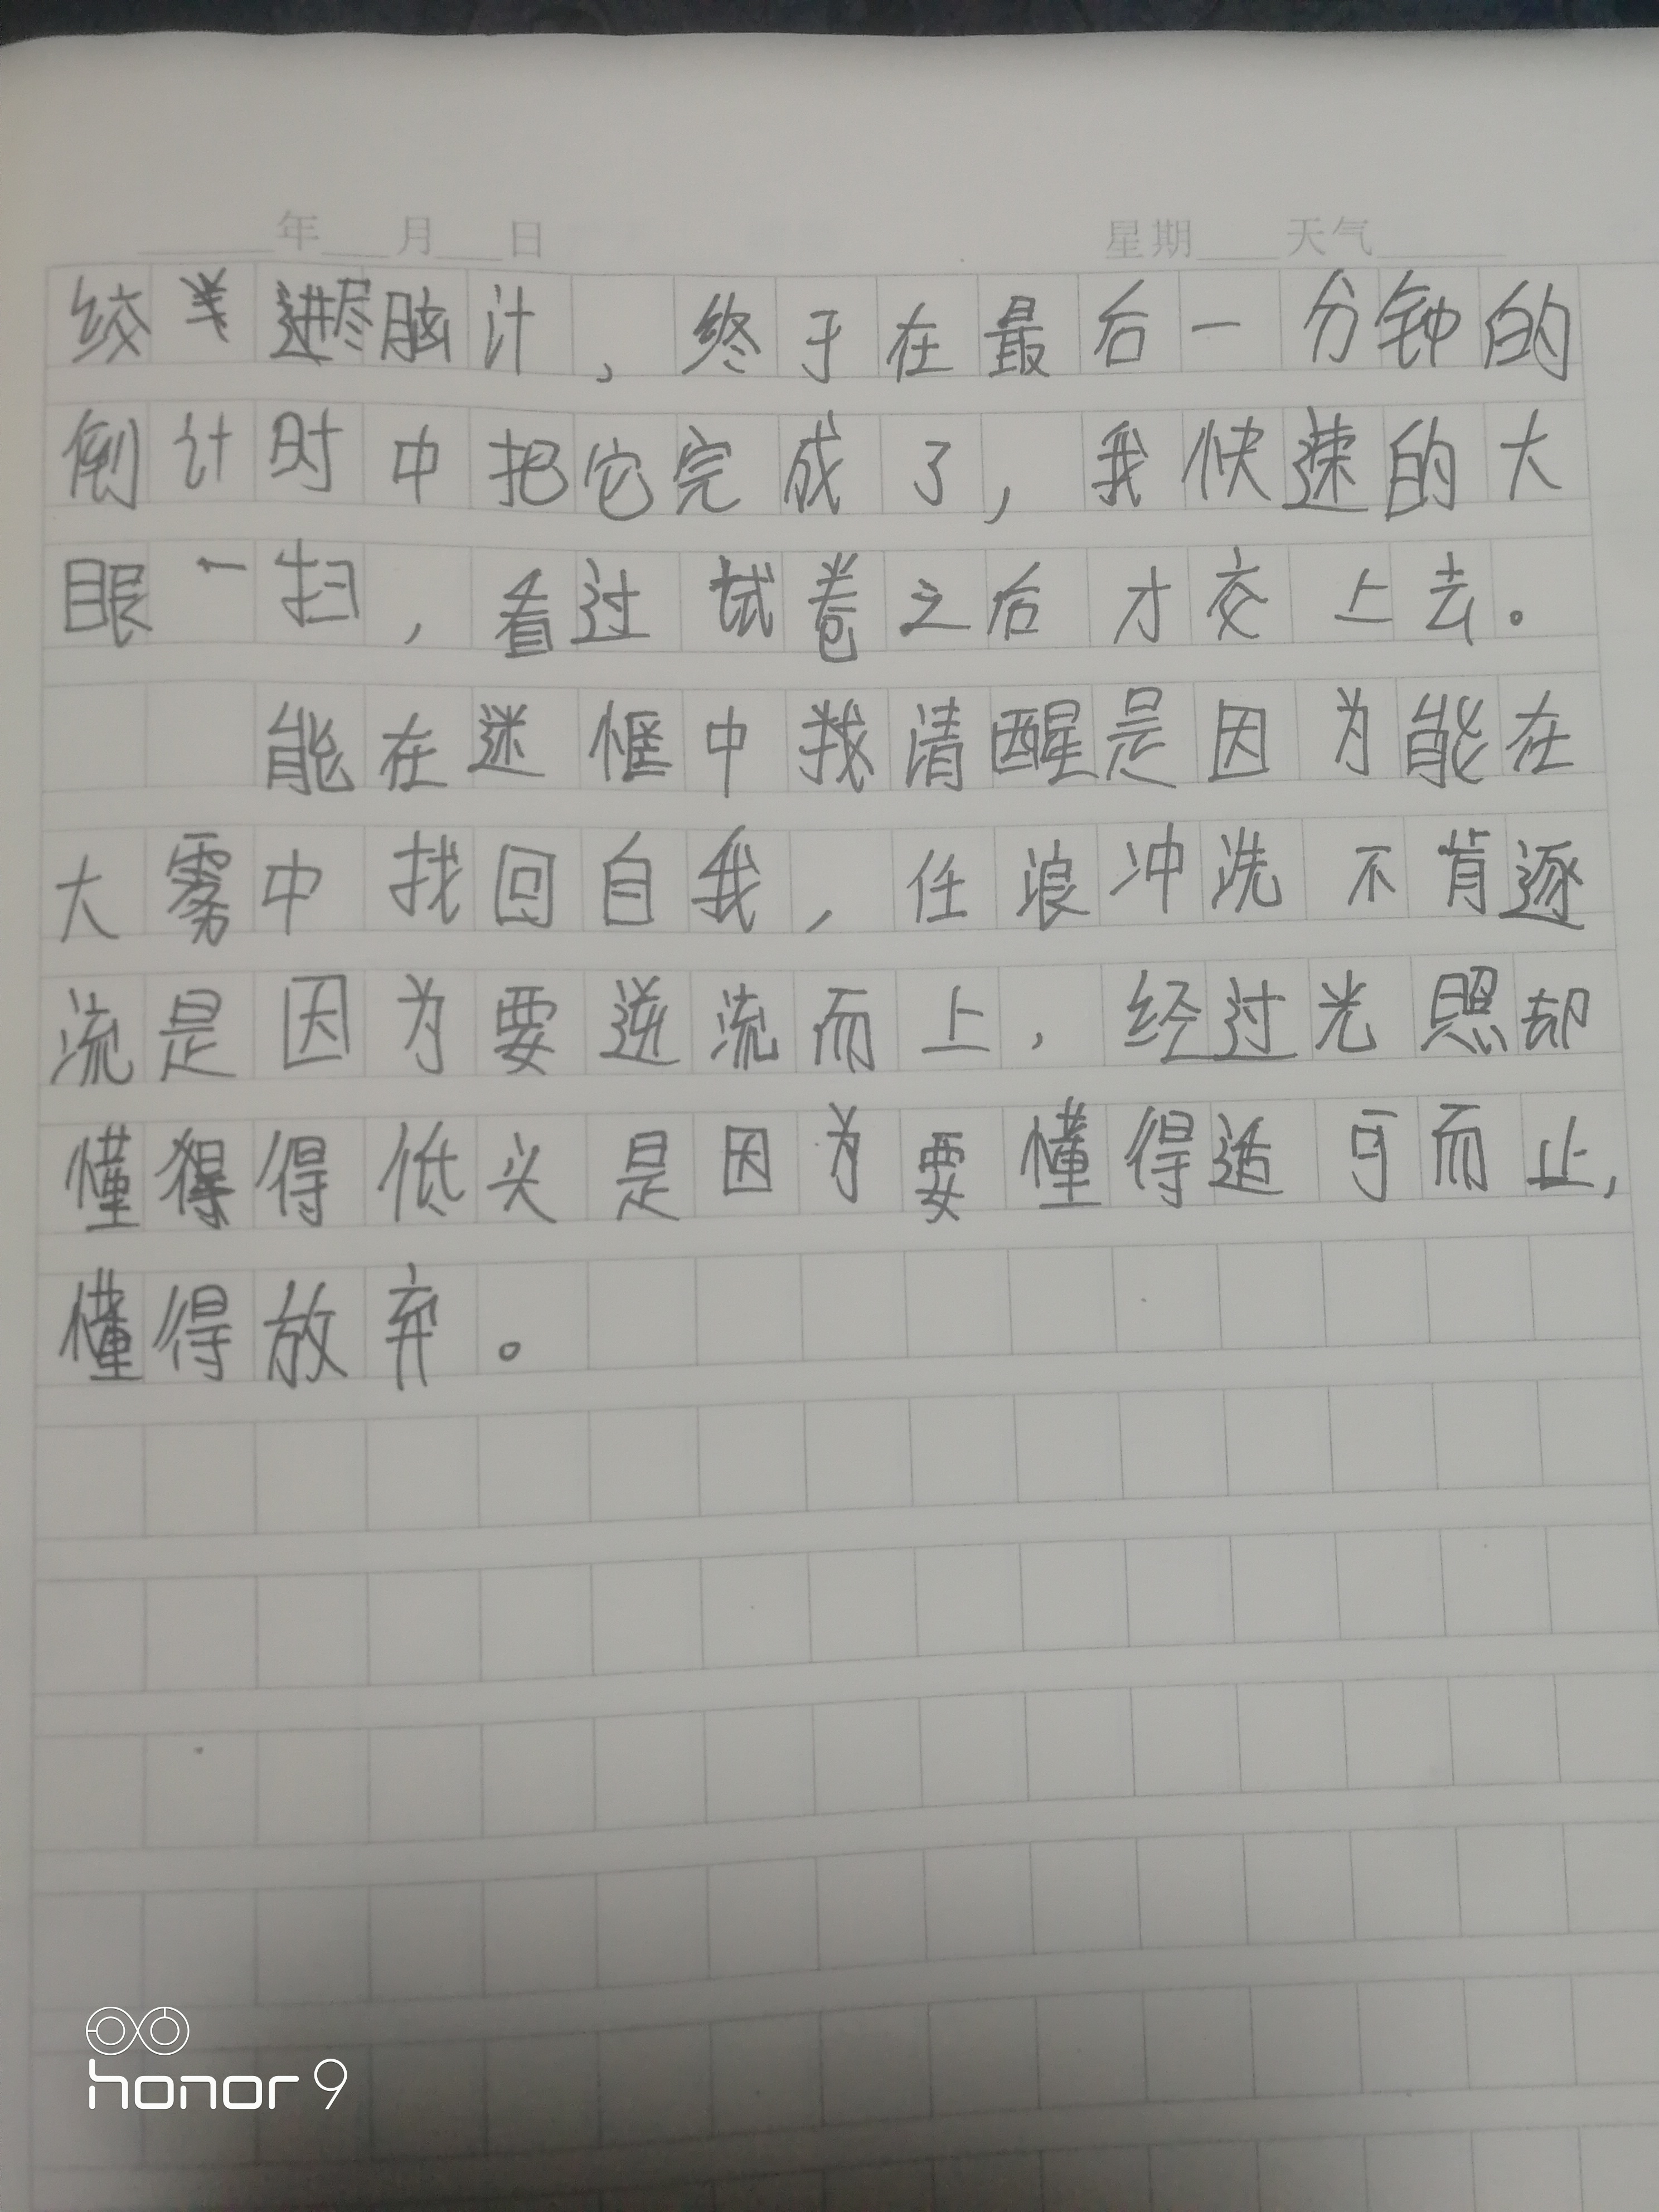 ____年__月__日 星期__天气____
绞尽脑汁，终于在最后一分钟的
倒计时中把它完成了，我快速的大
眼一扫，看过试卷之后才交上去。
能在迷惟中找清醒是因为能在
大雾中找回自我，任浪冲洗不肯逐
流是因为要逆流而上，经过光照却
懂得得低头是因为要懂得适可而止，
懂得放弃。
honor 9